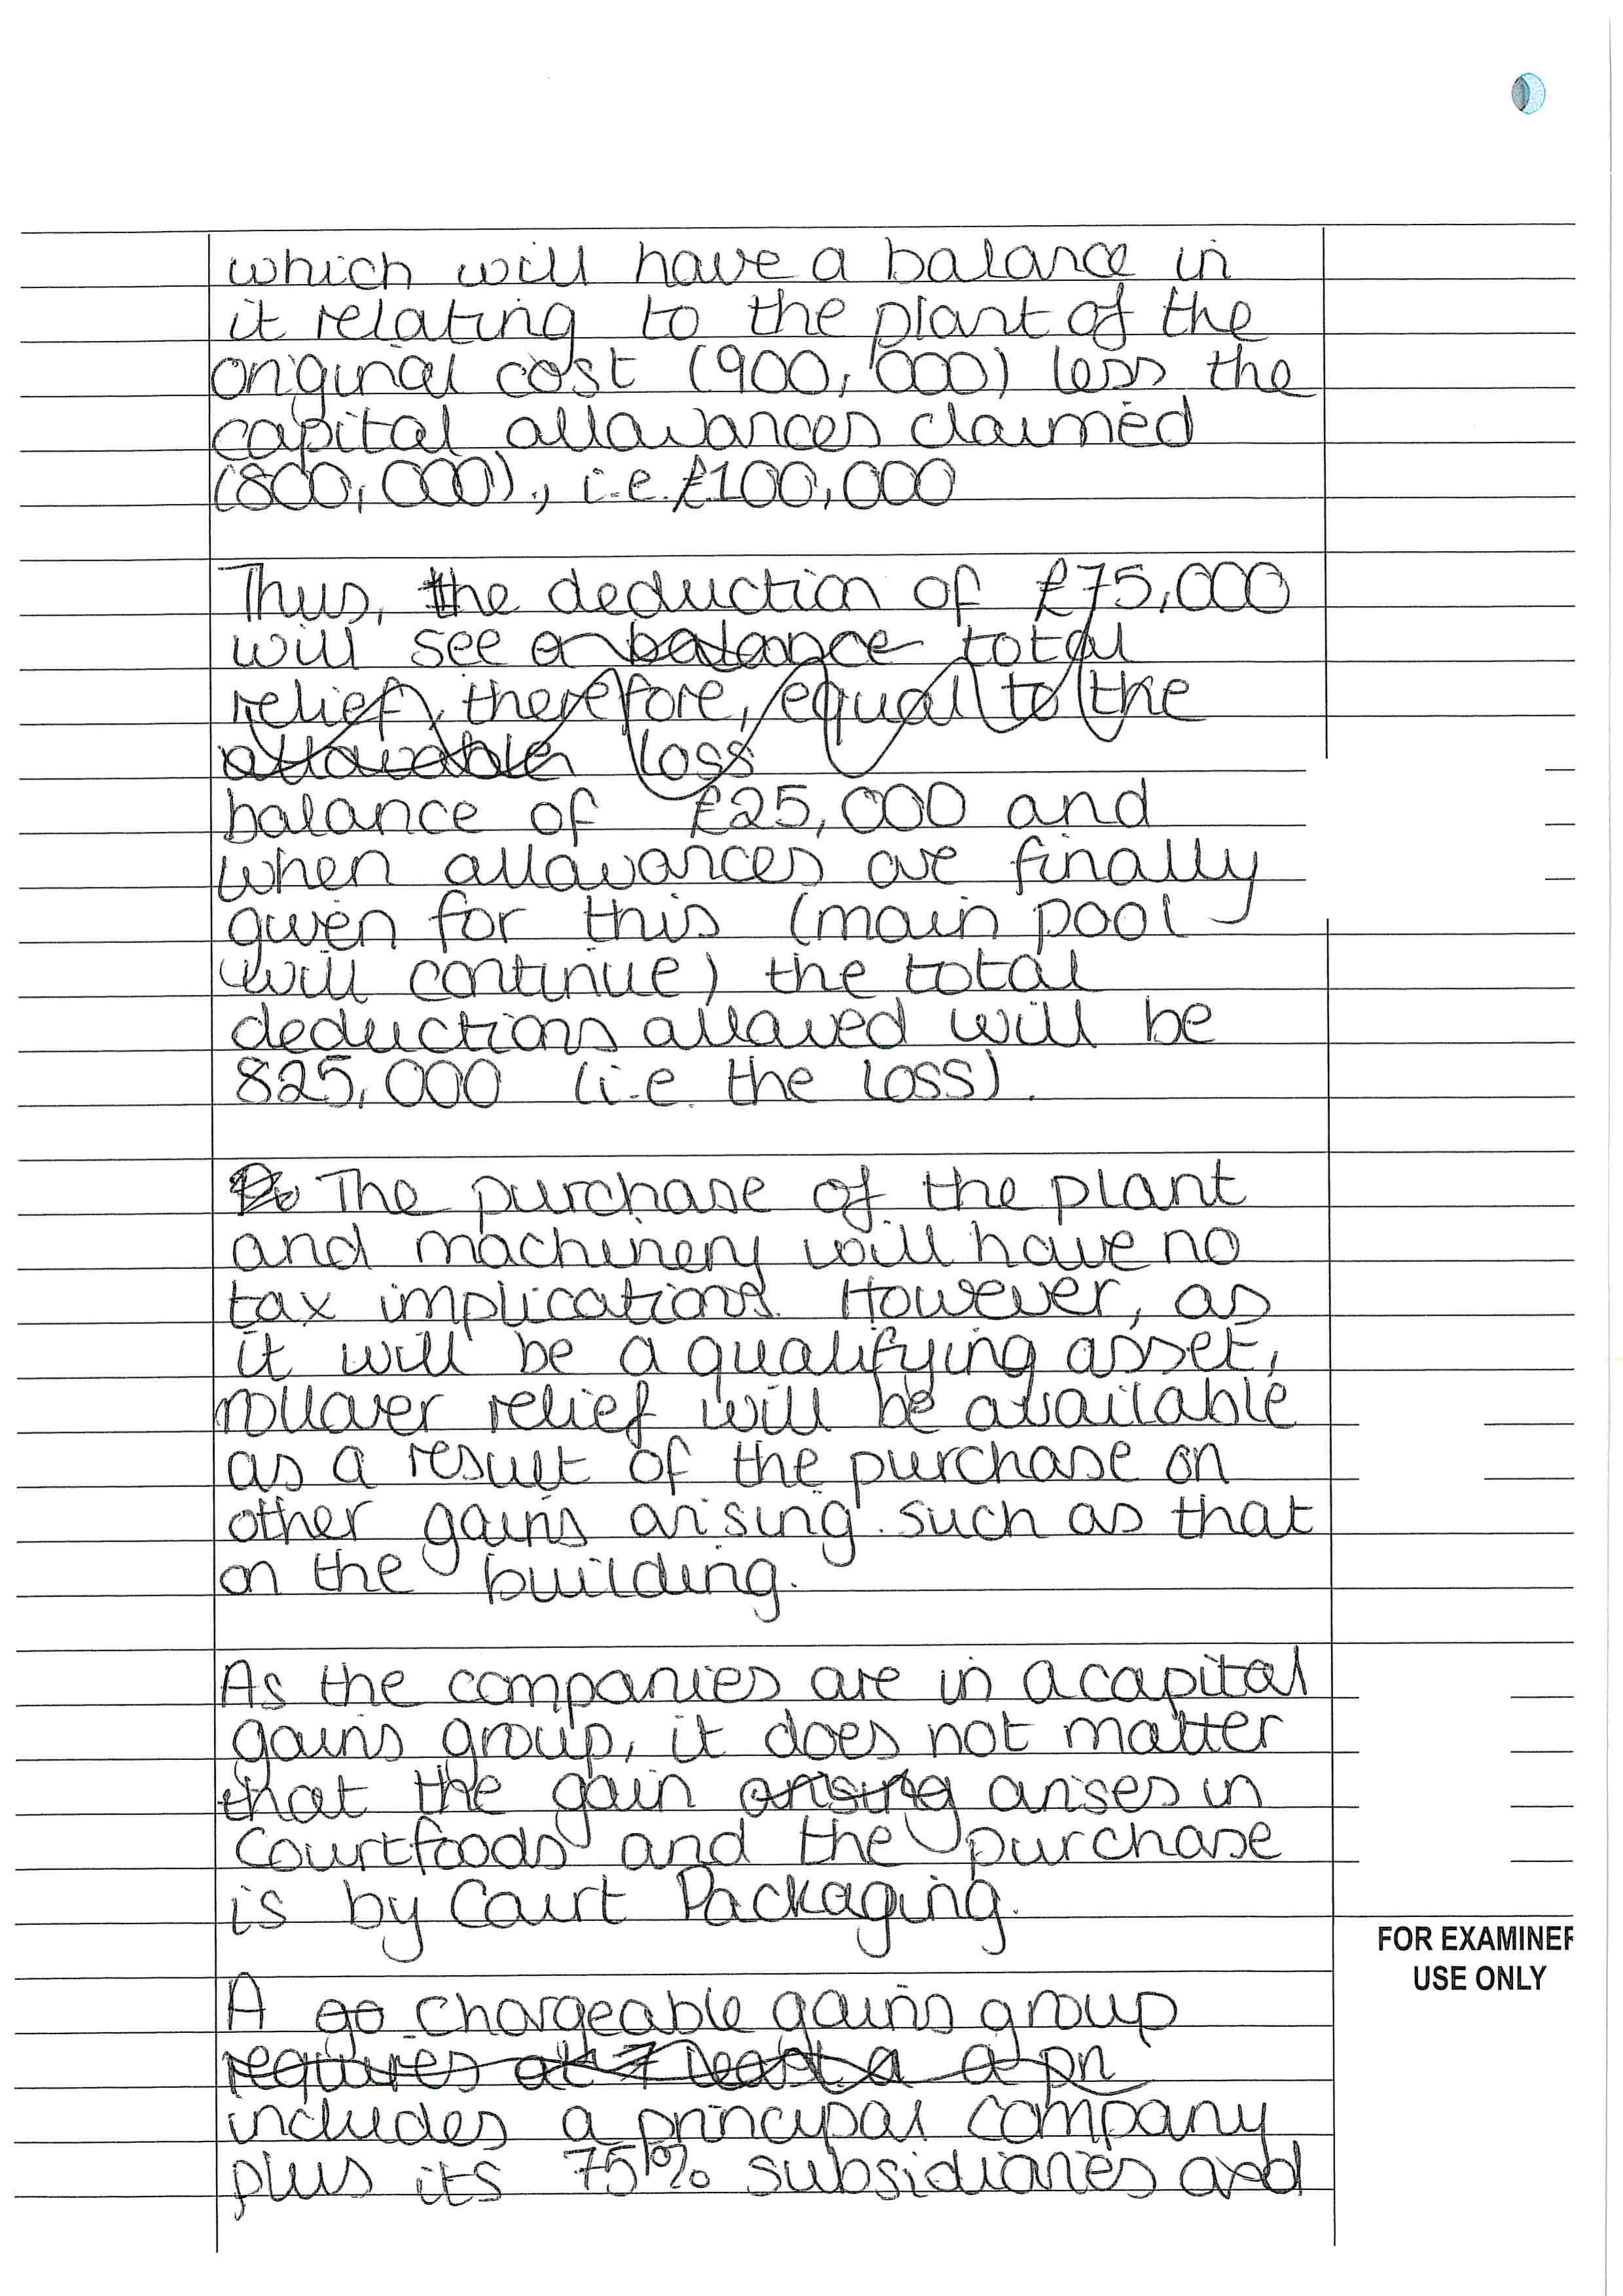 which will have a balance in
it relating to the plant of the
original cost (900,000) less the
capital allowances claimed
(800,000), i.e. £100,000
Thus, the deduction of £75,000
will see a balance total
relief, therefore, equal to the
allowable loss
balance of £25,000 and
when allowances are finally
given for this (main pool
will continue) the total
deductions allowed will be
825,000 (i.e. the loss).
The purchase of the plant
and machinery will have no
tax implications. However, as
it will be a qualifying asset,
rollover relief will be available
as a result of the purchase on
other gains arising such as that
on the building.
As the companies are in a capital
gains group, it does not matter
that the gain arising arises in
Courtfoods and the purchase
is by Court Packaging.
A go chargeable gains group
requires at least a a pn
includes a principal company
plus its 75% subsidiaries and
FOR EXAMINER
USE ONLY